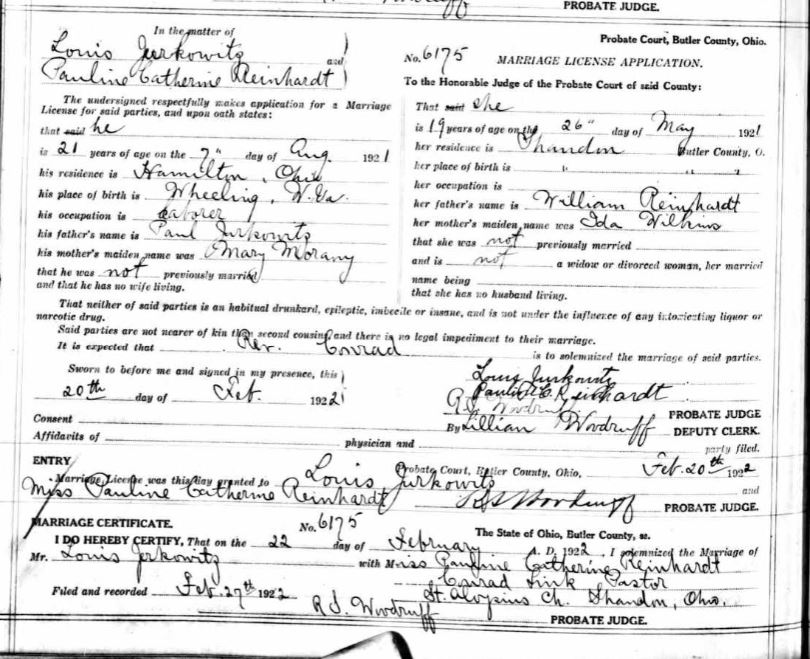 PROBATE JUDGE.
In the matter of
Louis Jurkowitz
and
Pauline Catherine Reinhardt
The undersigned respectfully makes application for a Marriage
License for said parties, and upon oath states:
that said he
is 21 years of age on the 7" day of Aug. 1921
his residence is Hamilton, Ohio
his place of birth is Wheeling, W. Va.
his occupation is Laborer
his father's name is Paul Jurkowitz
his mother's maiden name was Mary Morany
that he was not previously married
and that he has no wife living.
Probate Court, Butler County, Ohio.
No. 6175 MARRIAGE LICENSE APPLICATION.
To the Honorable Judge of the Probate Court of said County:
That said she
is 19 years of age on the 26" day of May 1921
her residence is Shandon Butler County, O.
her place of birth is " " "
her occupation is
her father's name is William Reinhardt
her mother's maiden name was Ida Wilkins
that she was not previously married
and is not a widow or divorced woman, her married
name being
that she has no husband living.
That neither of said parties is an habitual drunkard, epileptic, imbecile or insane, and is not under the influence of any intoxicating liquor or
narcotic drug.
Said parties are not nearer of kin than second cousins, and there is no legal impediment to their marriage.
It is expected that Rev. Conrad is to solemnized the marriage of said parties.
Sworn to before me and signed in my presence, this
20th day of Feb. 1922
Louis Jurkowitz
Pauline C. Reinhardt
Woodruff PROBATE JUDGE
By Lillian Woodruff DEPUTY CLERK.
Consent
Affidavits of physician and party filed.
ENTRY
Probate Court, Butler County, Ohio, Feb. 20th 1922
Marriage License was this day granted to Louis Jurkowitz and
Miss Pauline Catherine Reinhardt
Woodruff PROBATE JUDGE.
MARRIAGE CERTIFICATE. No. 6175 The State of Ohio, Butler County, ss.
I DO HEREBY CERTIFY, That on the 22 day of February A. D. 1922, I solemnized the Marriage of
Mr. Louis Jerkowitz with Miss Pauline Catherine Reinhardt
Conrad Link Pastor
St. Aloysius Ch. Shandon, Ohio.
Filed and recorded Feb. 27th 1922
R. S. Woodruff PROBATE JUDGE.